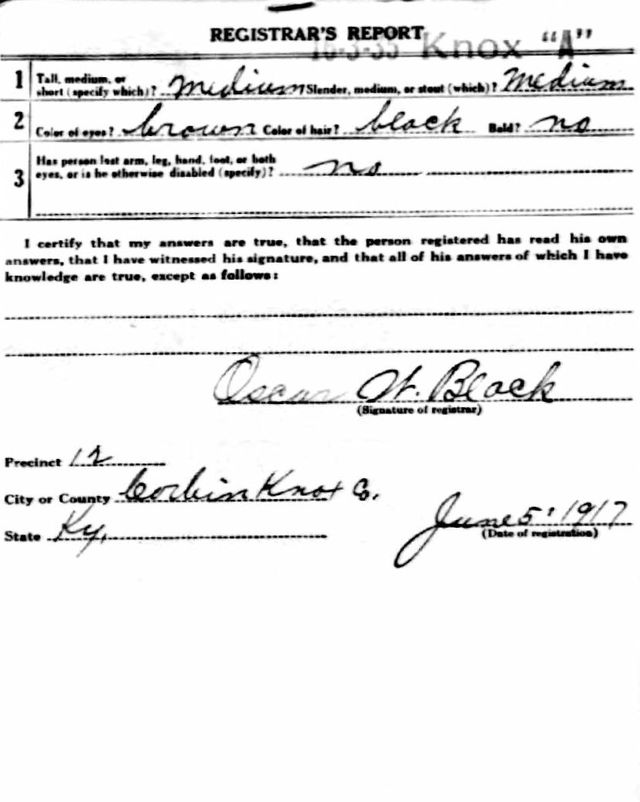 REGISTRAR'S REPORT
16-3-35 Knox "A"
1 Tall, medium, or short (specify which)? medium Slender, medium, or stout (which)? Medium
2 Color of eyes? brown Color of hair? black Bald? no
3 Has person lost arm, leg, hand, foot, or both eyes, or is he otherwise disabled (specify)? no
I certify that my answers are true, that the person registered has read his own
answers, that I have witnessed his signature, and that all of his answers of which I have
knowledge are true, except as follows:
Oscar W. Black
(Signature of registrar)
Precinct 12
City or County Corbin Knox Co.
State Ky.
June 5, 1917
(Date of registration)